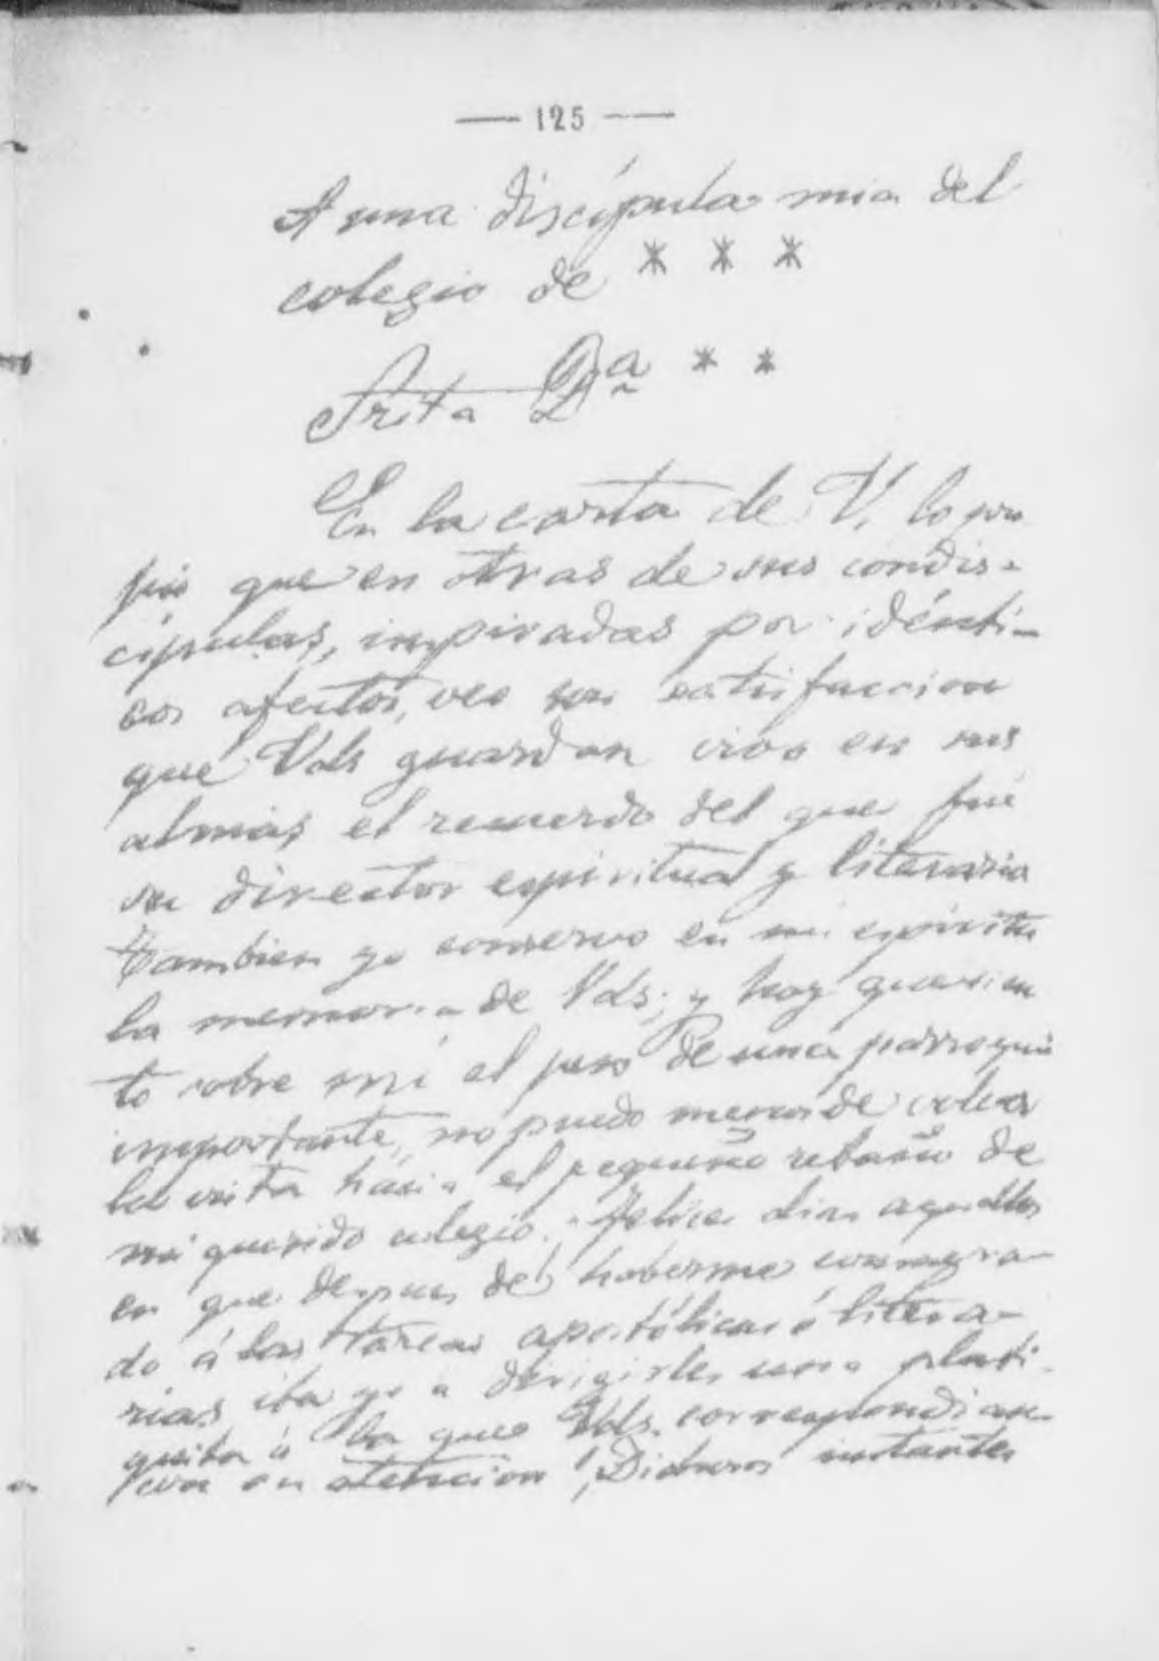 — 125 —
A una discípula mia del
colegio de * * *
Srita Dª * *
En la carta de V. lo pro
pio que en otras de sus condis-
cípulas, inspiradas por idénti-
cos afectos, veo con satisfaccion
que Vds guardan vivo en sus
almas el recuerdo del que fué
su director espiritual y literario
Tambien yo conservo en mi espíritu
la memoria de Vds; y hoy que sien
to sobre mi el peso de una parroquia
importante, no puedo menos de volver
la vista hácia el pequeño rebaño de
mi querido colegio. Felices dias aquellos
en que despues de haberme consagra-
do á las tareas apostólicas ó litera-
rias iba yo a dirigirles una plati-
quita á la que Vds. correspondian
con su atencion! ¡Dichosos instantes